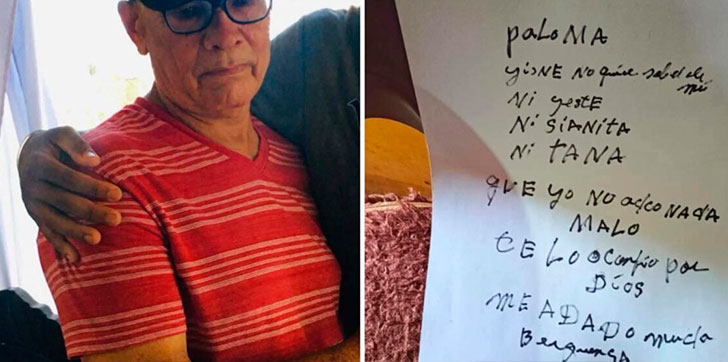 paloMA
yisNE No quiere saber de
mi
Ni yeste
Ni SIANITA
Ni TANA
QUE yo NO adco NADA
MALO
TE LO confio por
Dios
ME ADADO mucha
Berguensa